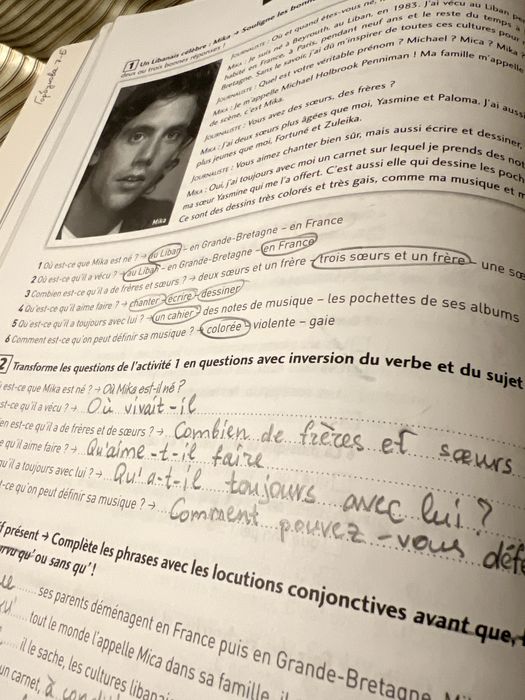 1 Un Libanais célèbre : Mika → Souligne les bonn
deux ou trois bonnes réponses !
JOURNALISTE : Où et quand êtes-vous né,
MIKA : Je suis né à Beyrouth, au Liban, en 1983. J'ai vécu au Liban pe
habité en France, à Paris, pendant neuf ans et le reste du temps
Bretagne. Sans le savoir, j'ai dû m'inspirer de toutes ces cultures pour
JOURNALISTE : Quel est votre véritable prénom ? Michael ? Mica ? Mika
MIKA : Je m'appelle Michael Holbrook Penniman ! Ma famille m'appelle
de scène, c'est Mika.
JOURNALISTE : Vous avez des sœurs, des frères ?
MIKA : J'ai deux sœurs plus âgées que moi, Yasmine et Paloma. J'ai aussi
plus jeunes que moi, Fortuné et Zuleika.
JOURNALISTE : Vous aimez chanter bien sûr, mais aussi écrire et dessiner,
MIKA : Oui, j'ai toujours avec moi un carnet sur lequel je prends des no
ma sœur Yasmine qui me l'a offert. C'est aussi elle qui dessine les poch
Ce sont des dessins très colorés et très gais, comme ma musique et m
Mika
1 Où est-ce que Mika est né ? → au Liban – en Grande-Bretagne – en France
2 Où est-ce qu'il a vécu ? → au Liban – en Grande-Bretagne – en France
3 Combien est-ce qu'il a de frères et sœurs ? → deux sœurs et un frère – trois sœurs et un frère – une sœ
4 Qu'est-ce qu'il aime faire ? → chanter – écrire – dessiner
5 Qu'est-ce qu'il a toujours avec lui ? → un cahier – des notes de musique – les pochettes de ses albums
6 Comment est-ce qu'on peut définir sa musique ? → colorée – violente – gaie
2 Transforme les questions de l'activité 1 en questions avec inversion du verbe et du sujet
est-ce que Mika est né ? → Où Mika est-il né ?
st-ce qu'il a vécu ? → Où vivait-il
en est-ce qu'il a de frères et de sœurs ? → Combien de frères et sœurs
e qu'il aime faire ? → Qu'aime-t-il faire
qu'il a toujours avec lui ? → Qu'a-t-il toujours avec lui ?
t-ce qu'on peut définir sa musique ? → Comment pouvez-vous défe
f présent → Complète les phrases avec les locutions conjonctives avant que,
urvu qu' ou sans qu' !
ses parents déménagent en France puis en Grande-Bretagne
tout le monde l'appelle Mica dans sa famille, il
il le sache, les cultures libana
un carnet, à con